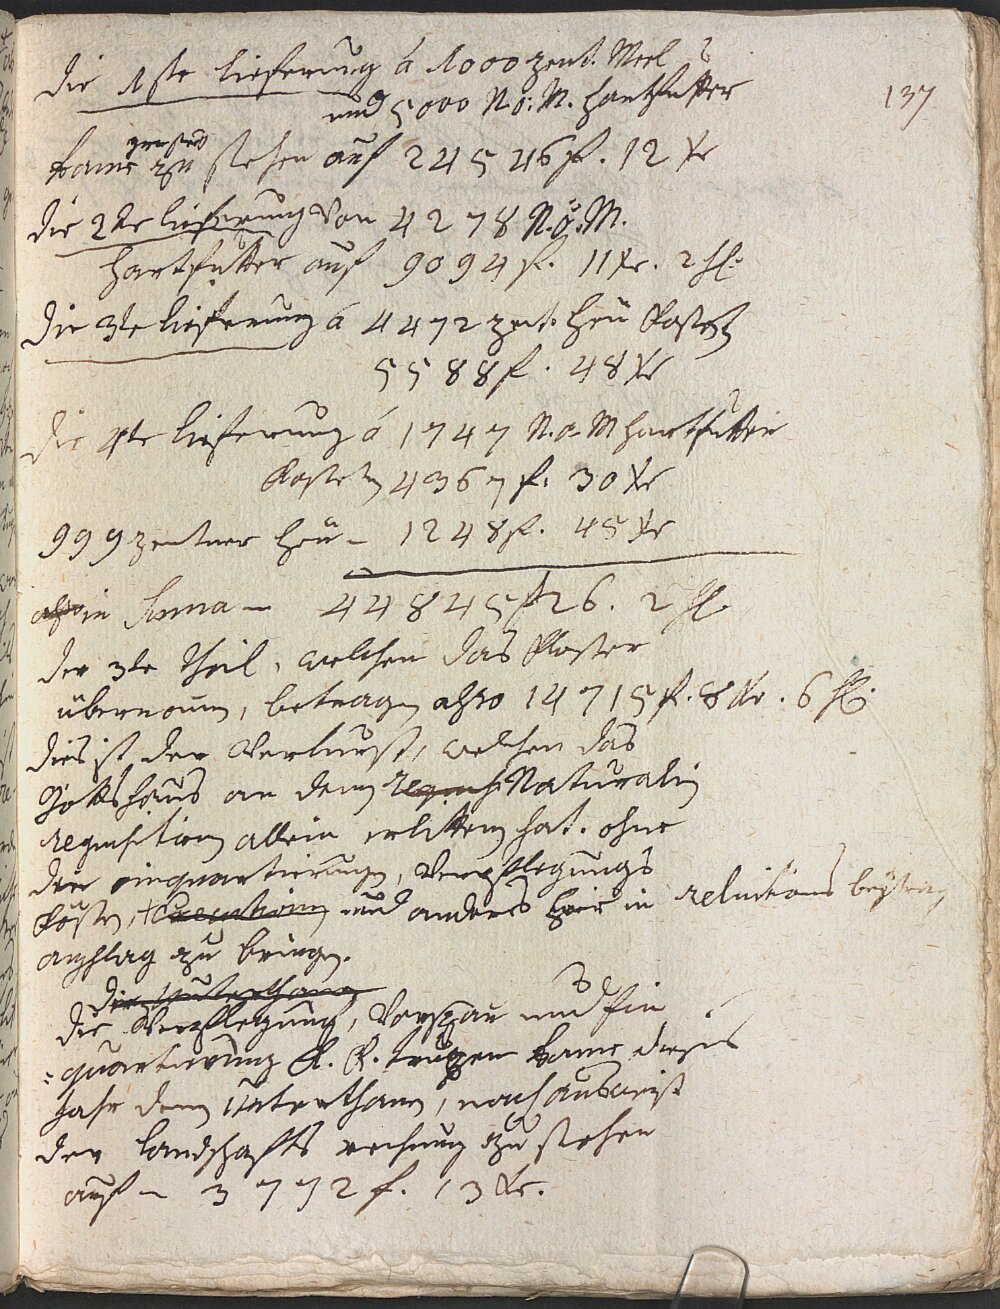 137
die 1ste Lieferung á 1000 Zent. Meel
und 5000 N.Ö.M. Hartfutter
kame zu stehen auf 24546 f. 12 Xr
die 2te Lieferung von 4278 N.Ö.M.
Hartfutter auf 9094 f. 11 Xr. 2 hl.
die 3te Lieferung á 4472 Zent. Heü kosten
5588 f. 48 Xr
die 4te Lieferung á 1747 N.Ö.M Hartfutter
kosten 4367 f. 30 Xr
999 Zentner Heü – 1248 f. 45 Xr
also in Suma – 44845 f 26. 2 hl.
der 3te Theil, welchen das Kloster
übernomm, betragen also 14715 f. 8 Xr. 6 hl.
dies ist der Verlurst, welchen das
Gottshaus an denen Naturalin
requisition allein erlitten hat. ohne
die einquartierungen, Verpflegungs
kösten, Execution und anders hier in reluitions beytrag
anschlag zu bringen.
die Unterthanen
die Verpflegung, Vorspan und Ein
quartierung K. K. truppen kame dieses
Jahr denen Unterthanen, nach ausweis
der Landschafts rechnung zu stehen
auf – 3772 f. 13 Xr.